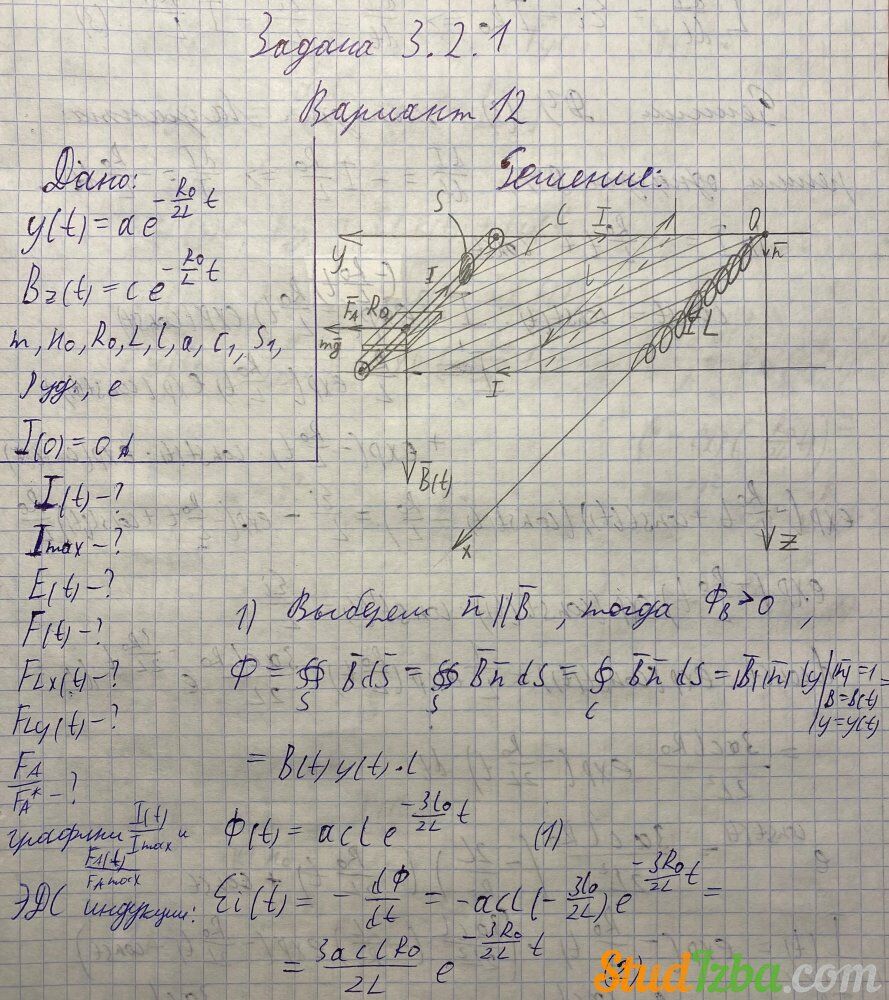 Задача 3.2.1
Вариант 12
Дано:
y(t) = a e^{-R₀/2L t}
B_z(t) = c e^{-R₀/L t}
m, n₀, R₀, L, l, a, c, S₁,
ρуд., e
I(0) = 0
I(t) - ?
Imax - ?
E(t) - ?
F(t) - ?
F_Lx(t) - ?
F_Ly(t) - ?
F_A/F_A* - ?
графики I(t)/Imax и
F_A(t)/F_Amax
Решение:
S C I O
y I l n̄
F̄_A R₀ L
mḡ
I
B̄(t)
x z
1) Выберем n̄ || B̄, тогда Ф_B > 0;
Ф = ∯_S B̄ dS̄ = ∯_S B̄ n̄ dS = ∮_C B̄ n̄ dS = |B̄| |n̄| ly | |n̄| = 1 B = B(t) y = y(t) | =
= B(t) y(t) · l
Ф(t) = acl e^{-3R₀/2L t} (1)
ЭДС индукции: Ei(t) = - dФ/dt = -acl (- 3R₀/2L) e^{-3R₀/2L t} =
= 3aclR₀/2L e^{-3R₀/2L t} (2)
StudIzba.com